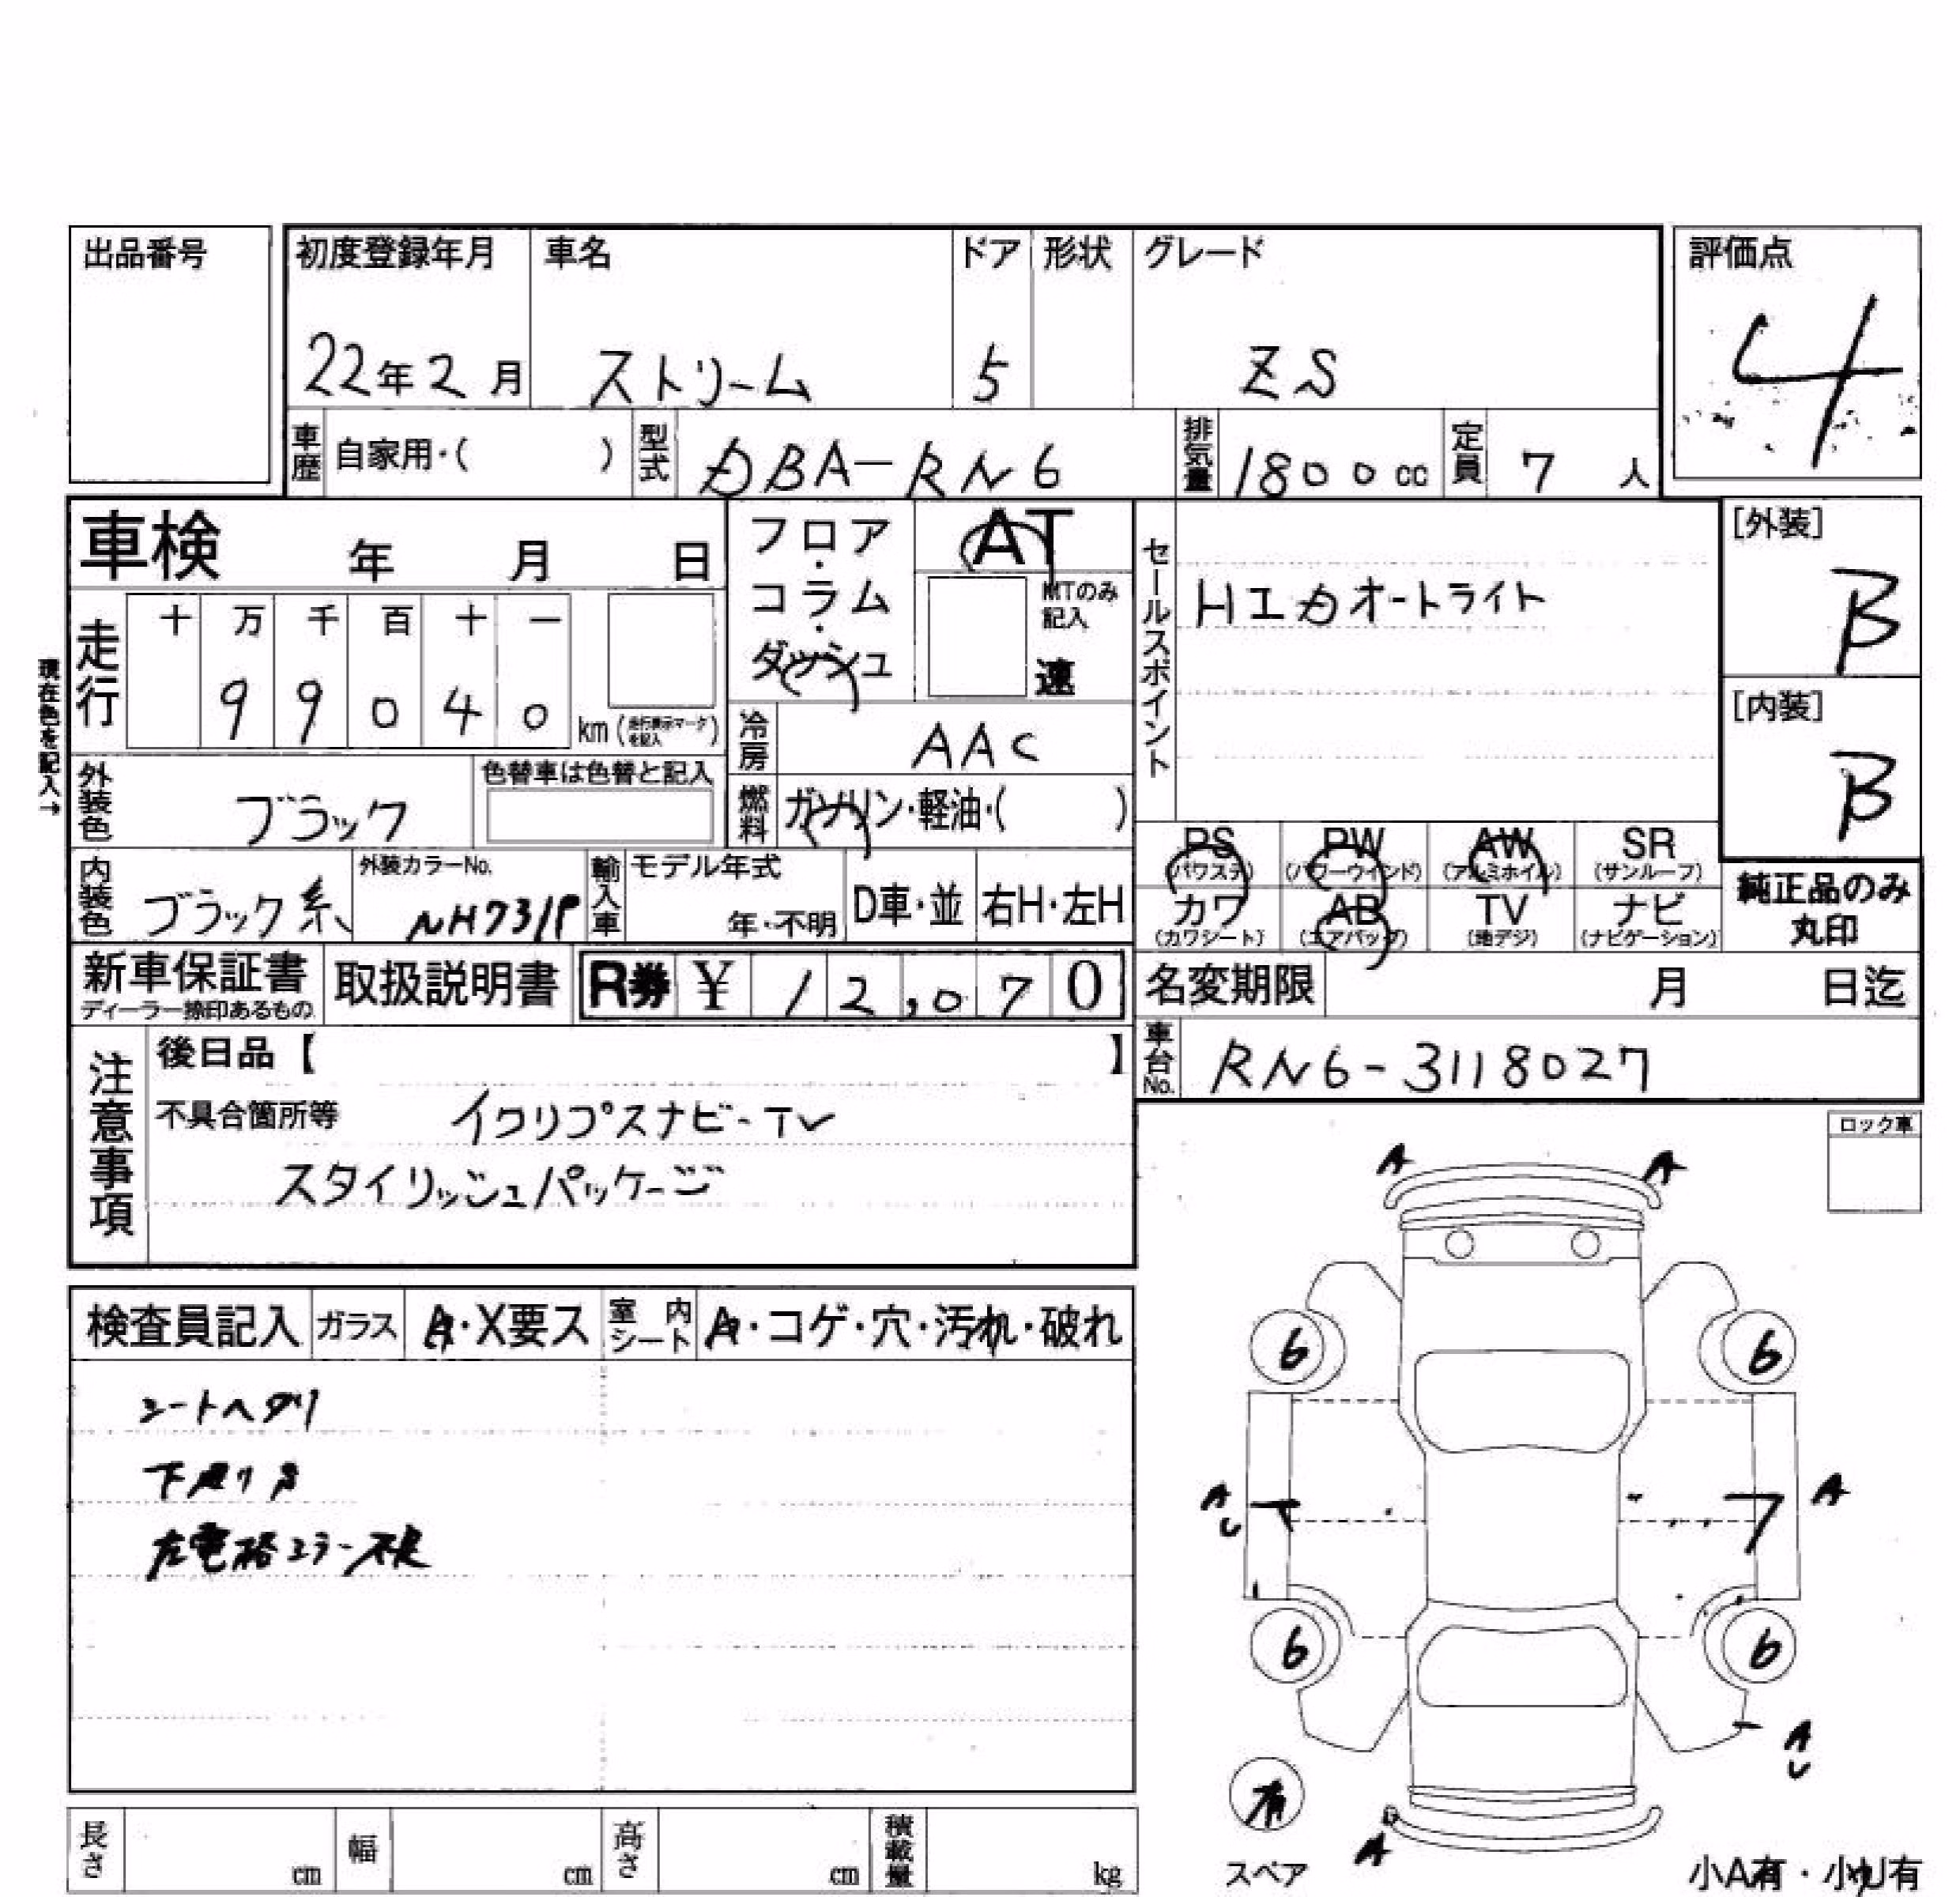 出品番号
初度登録年月 車名 ドア 形状 グレード
評価点
22年2月 ストリーム 5 ZS
4
車歴 自家用・( ) 型式 DBA-RN6 排気量 1800cc 定員 7人
車検 年 月 日
フロア・コラム・ダッシュ
AT
MTのみ記入
速
セールスポイント
HID オートライト
[外装]
B
[内装]
B
現在色を記入→
走行 十 万 千 百 十 一
9 9 0 4 0 km (走行表示マークを記入)
冷房 AAC
外装色 ブラック 色替車は色替と記入
燃料 ガソリン・軽油・( )
PS (パワステ) PW (パワーウィンド) AW (アルミホイル) SR (サンルーフ)
カワ (カワシート) AB (エアバッグ) TV (地デジ) ナビ (ナビゲーション)
純正品のみ
丸印
内装色 ブラック系 外装カラーNo. NH731P 輸入車 モデル年式 年・不明 D車・並 右H・左H
新車保証書 取扱説明書 R券 ¥ 12,070
ディーラー捺印あるもの
名変期限 月 日迄
車台No. RN6-3118027
注意事項
後日品【 】
不具合箇所等 イクリプスナビ-TV
スタイリッシュパッケージ
ロック車
A A
検査員記入 ガラス A・X要ス 室内シート A・コゲ・穴・汚れ・破れ
シートヘタリ
下廻りS
左電格ミラー不良
6 6
A U A
6 6
A U
有
スペア
A
小A有・小U有
長さ cm 幅 cm 高さ cm 積載量 kg